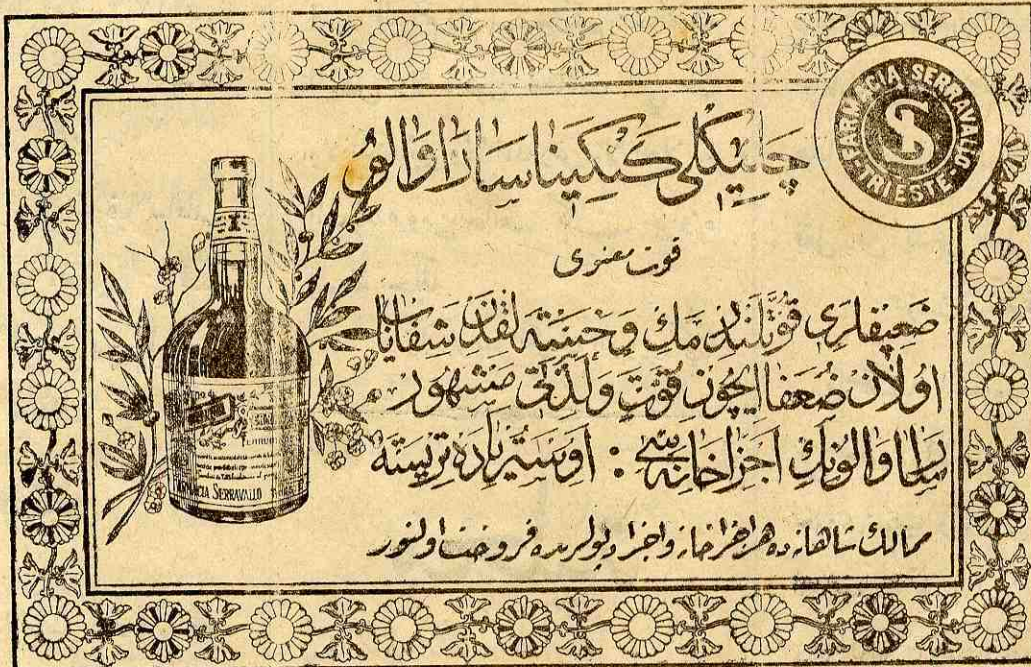 FARMACIA SERRAVALLO
TRIESTE
S
چليكلى كنكينا ساراوالو
قوت معنوى
ضعيفلرى قوتلندرمك و خسته لقدن شفاياب
اولان ضعفا ايچون قوت و لذتى مشهور
ساراوالونك اجزاخانه سى : اوستريا ده تريسته
ممالك شاهانه ده هر اجزاخانه و اجزا دپولرنده فروخت اولنور
FARMACIA SERRAVALLO